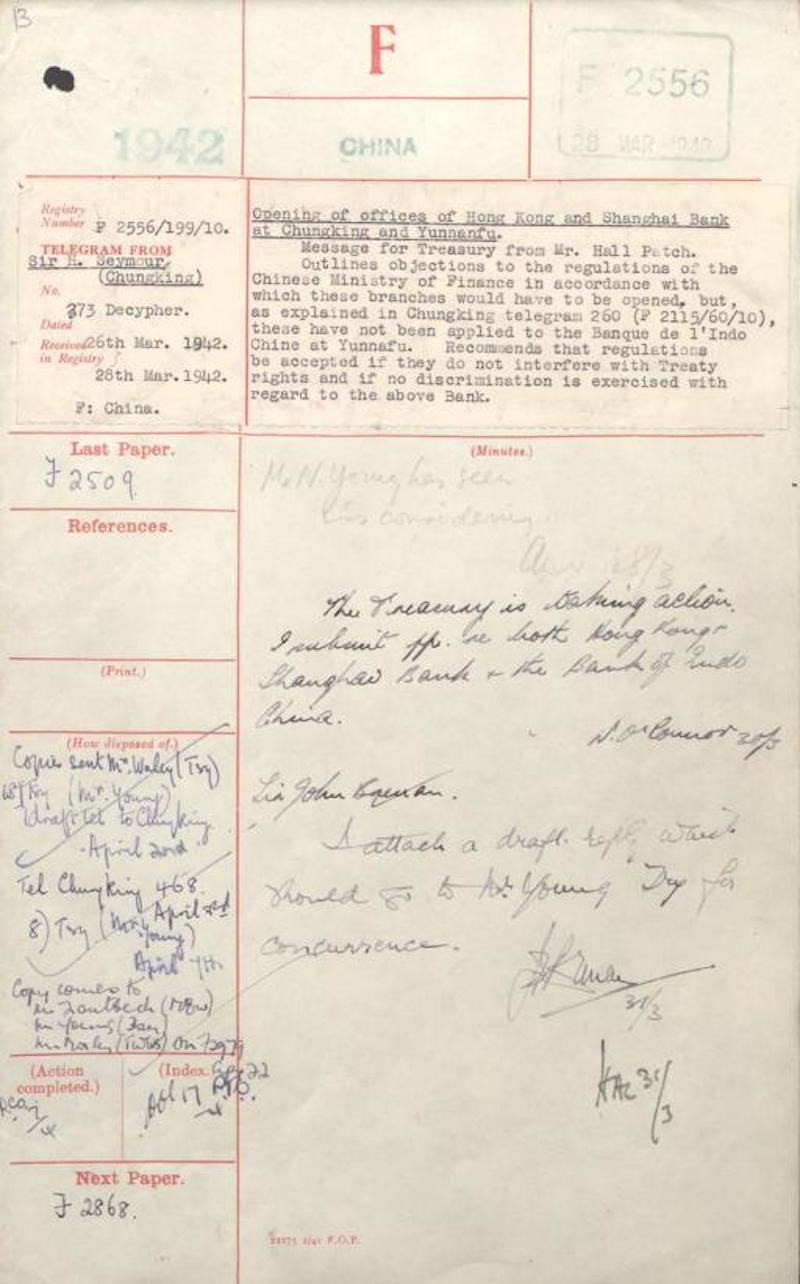 13
F
F 2556
28 MAR 1942
1942
CHINA
Registry
Number F 2556/199/10.
TELEGRAM FROM
Sir H. Seymour,
(Chungking)
No.
373 Decypher.
Dated
Received 26th Mar. 1942.
in Registry
28th Mar. 1942.
F: China.
Opening of offices of Hong Kong and Shanghai Bank
at Chungking and Yunnanfu.
Message for Treasury from Mr. Hall Patch.
Outlines objections to the regulations of the
Chinese Ministry of Finance in accordance with
which these branches would have to be opened, but,
as explained in Chungking telegram 260 (F 2115/60/10),
these have not been applied to the Banque de l'Indo
Chine at Yunnafu. Recommends that regulations
be accepted if they do not interfere with Treaty
rights and if no discrimination is exercised with
regard to the above Bank.
Last Paper.
F 2509
References.
(Print.)
(How disposed of.)
Copies sent Mr. Waley (Tsy)
(Mr. Young)
Draft tel to Chungking
April 2nd
Tel Chungking 468.
April 2nd
8) Tsy (Mr. Young)
April 9th
Copy comes to
Mr Young
(Action
completed.)
(Index.)
Next Paper.
F 2868.
(Minutes.)
Mr N. Young has seen
& is considering.
28/3
The Treasury is taking action.
I submit pp. re both Hong Kong &
Shanghai Bank & the Bank of Indo
China.
N. O'Connor 30/3
Sir John Brenan.
I attach a draft reply which
should go to Mr Young Tsy for
concurrence.
31/3
31/3
22275 2/41 F.O.P.